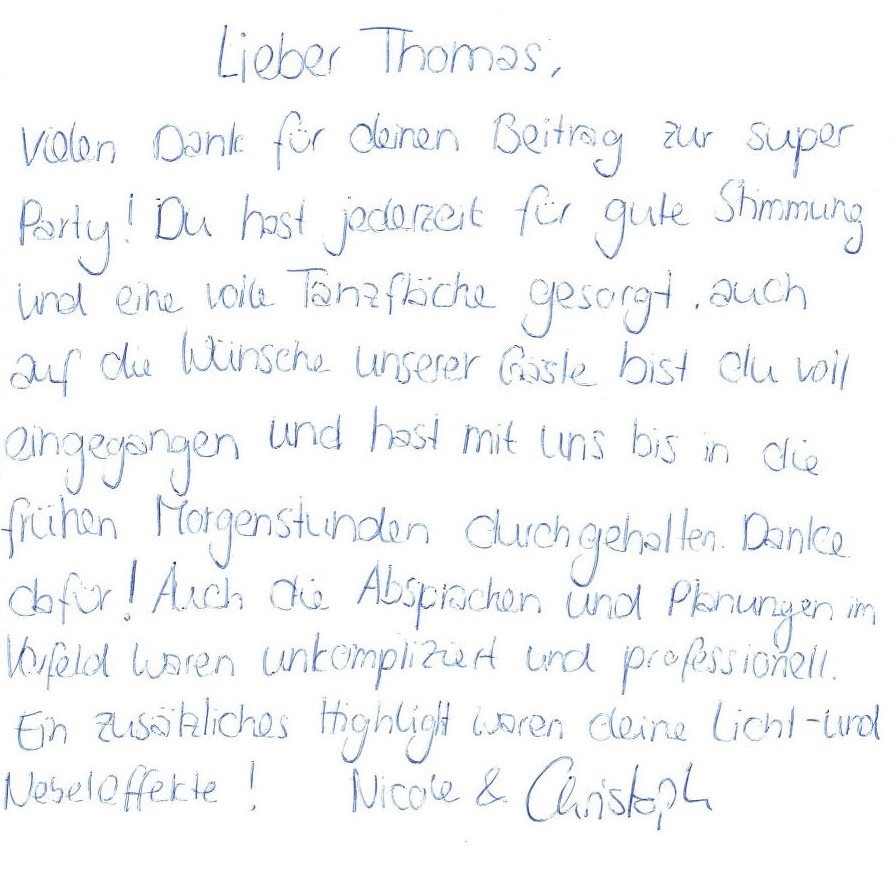 Lieber Thomas,
Vielen Dank für deinen Beitrag zur super
Party! Du hast jederzeit für gute Stimmung
und eine volle Tanzfläche gesorgt, auch
auf die Wünsche unserer Gäste bist du voll
eingegangen und hast mit uns bis in die
frühen Morgenstunden durchgehalten. Danke
dafür! Auch die Absprachen und Planungen im
Vorfeld waren unkompliziert und professionell.
Ein zusätzliches Highlight waren deine Licht-und
Nebeleffekte! Nicole & Christoph